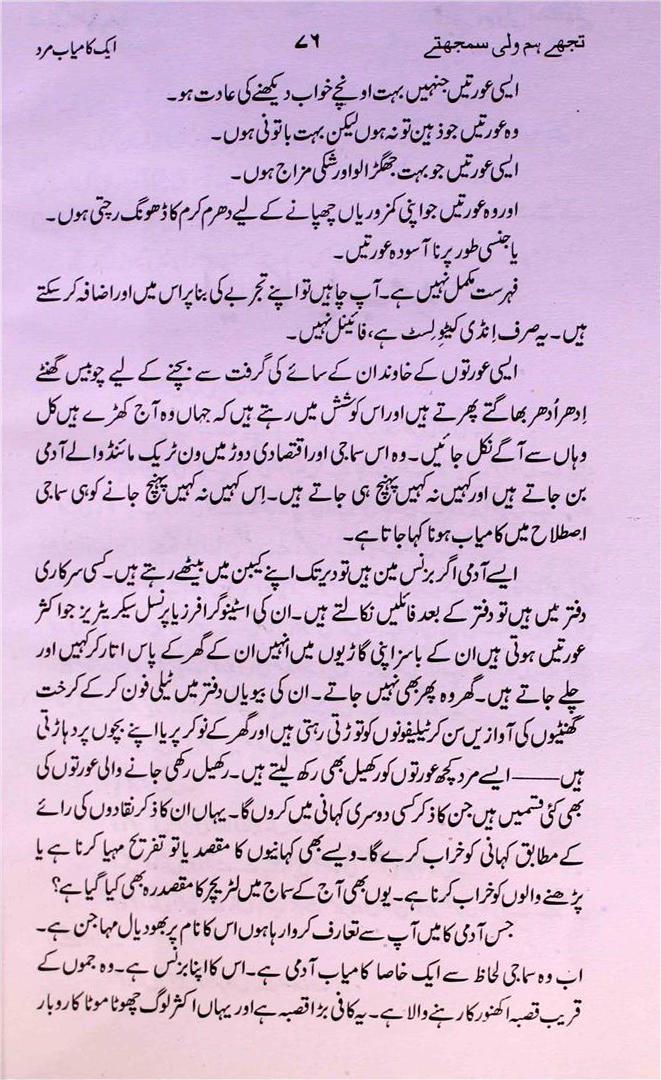 تجھے ہم ولی سمجھتے ۷۶ ایک کامیاب مرد
ایسی عورتیں جنہیں بہت اونچے خواب دیکھنے کی عادت ہو۔
وہ عورتیں جو ذہین تو نہ ہوں لیکن بہت باتونی ہوں۔
ایسی عورتیں جو بہت جھگڑالو اور شکی مزاج ہوں۔
اور وہ عورتیں جو اپنی کمزوریاں چھپانے کے لیے دھرم کرم کا ڈھونگ رچتی ہوں۔
یا جنسی طور پر نا آسودہ عورتیں۔
فہرست مکمل نہیں ہے۔ آپ چاہیں تو اپنے تجربے کی بنا پر اس میں اور اضافہ کر سکتے
ہیں۔ یہ صرف اِنڈی کیٹو لِسٹ ہے، فائینل نہیں۔
ایسی عورتوں کے خاوند ان کے سائے کی گرفت سے بچنے کے لیے چوبیس گھنٹے
اِدھر اُدھر بھاگتے پھرتے ہیں اور اس کوشش میں رہتے ہیں کہ جہاں وہ آج کھڑے ہیں کل
وہاں سے آگے نکل جائیں۔ وہ اس سماجی اور اقتصادی دوڑ میں ون ٹریک مائنڈ والے آدمی
بن جاتے ہیں اور کہیں نہ کہیں پہنچ ہی جاتے ہیں۔ اِس کہیں نہ کہیں پہنچ جانے کو ہی سماجی
اصطلاح میں کامیاب ہونا کہا جاتا ہے۔
ایسے آدمی اگر بزنس مین ہیں تو دیر تک اپنے کیبن میں بیٹھے رہتے ہیں۔ کسی سرکاری
دفتر میں ہیں تو دفتر کے بعد فائلیں نکالتے ہیں۔ ان کی اسٹینو گرافرز یا پرنسل سیکریٹریز جو اکثر
عورتیں ہوتی ہیں ان کے باسز اپنی گاڑیوں میں انہیں ان کے گھر کے پاس اتار کر کہیں اور
چلے جاتے ہیں۔ گھر وہ پھر بھی نہیں جاتے۔ ان کی بیویاں دفتر میں ٹیلی فون کر کے کرخت
گھنٹیوں کی آوازیں سن کر ٹیلیفونوں کو توڑتی رہتی ہیں اور گھر کے نوکر پر یا اپنے بچوں پر دہاڑتی
ہیں —— ایسے مرد کچھ عورتوں کو رکھیل بھی رکھ لیتے ہیں۔ رکھیل رکھی جانے والی عورتوں کی
بھی کئی قسمیں ہیں جن کا ذکر کسی دوسری کہانی میں کروں گا۔ یہاں ان کا ذکر نقادوں کی رائے
کے مطابق کہانی کو خراب کرے گا۔ ویسے بھی کہانیوں کا مقصد یا تو تفریح مہیا کرنا ہے یا
پڑھنے والوں کو خراب کرنا ہے۔ یوں بھی آج کے سماج میں لٹریچر کا مقصد رہ بھی کیا گیا ہے؟
جس آدمی کا میں آپ سے تعارف کروا رہا ہوں اس کا نام پربھو دیال مہاجن ہے۔
اب وہ سماجی لحاظ سے ایک خاصا کامیاب آدمی ہے۔ اس کا اپنا بزنس ہے۔ وہ جموں کے
قریب قصبہ اکھنور کا رہنے والا ہے۔ یہ کافی بڑا قصبہ ہے اور یہاں اکثر لوگ چھوٹا موٹا کاروبار